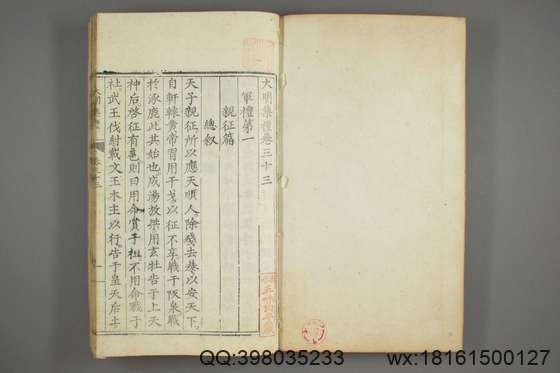 大明集禮卷三十三
軍禮第一
親征篇
總叙
天子親征所以應天順人除殘去暴以安天下
自軒轅黃帝習用干戈以征不享戰于阪泉戰
於涿鹿此其始也成湯放桀用玄牡告于上天
神后啓征有扈則曰用命賞于祖不用命戮于
社武王伐射載文王木主以行告于皇天后土
QQ:398035233
wx:18161500127